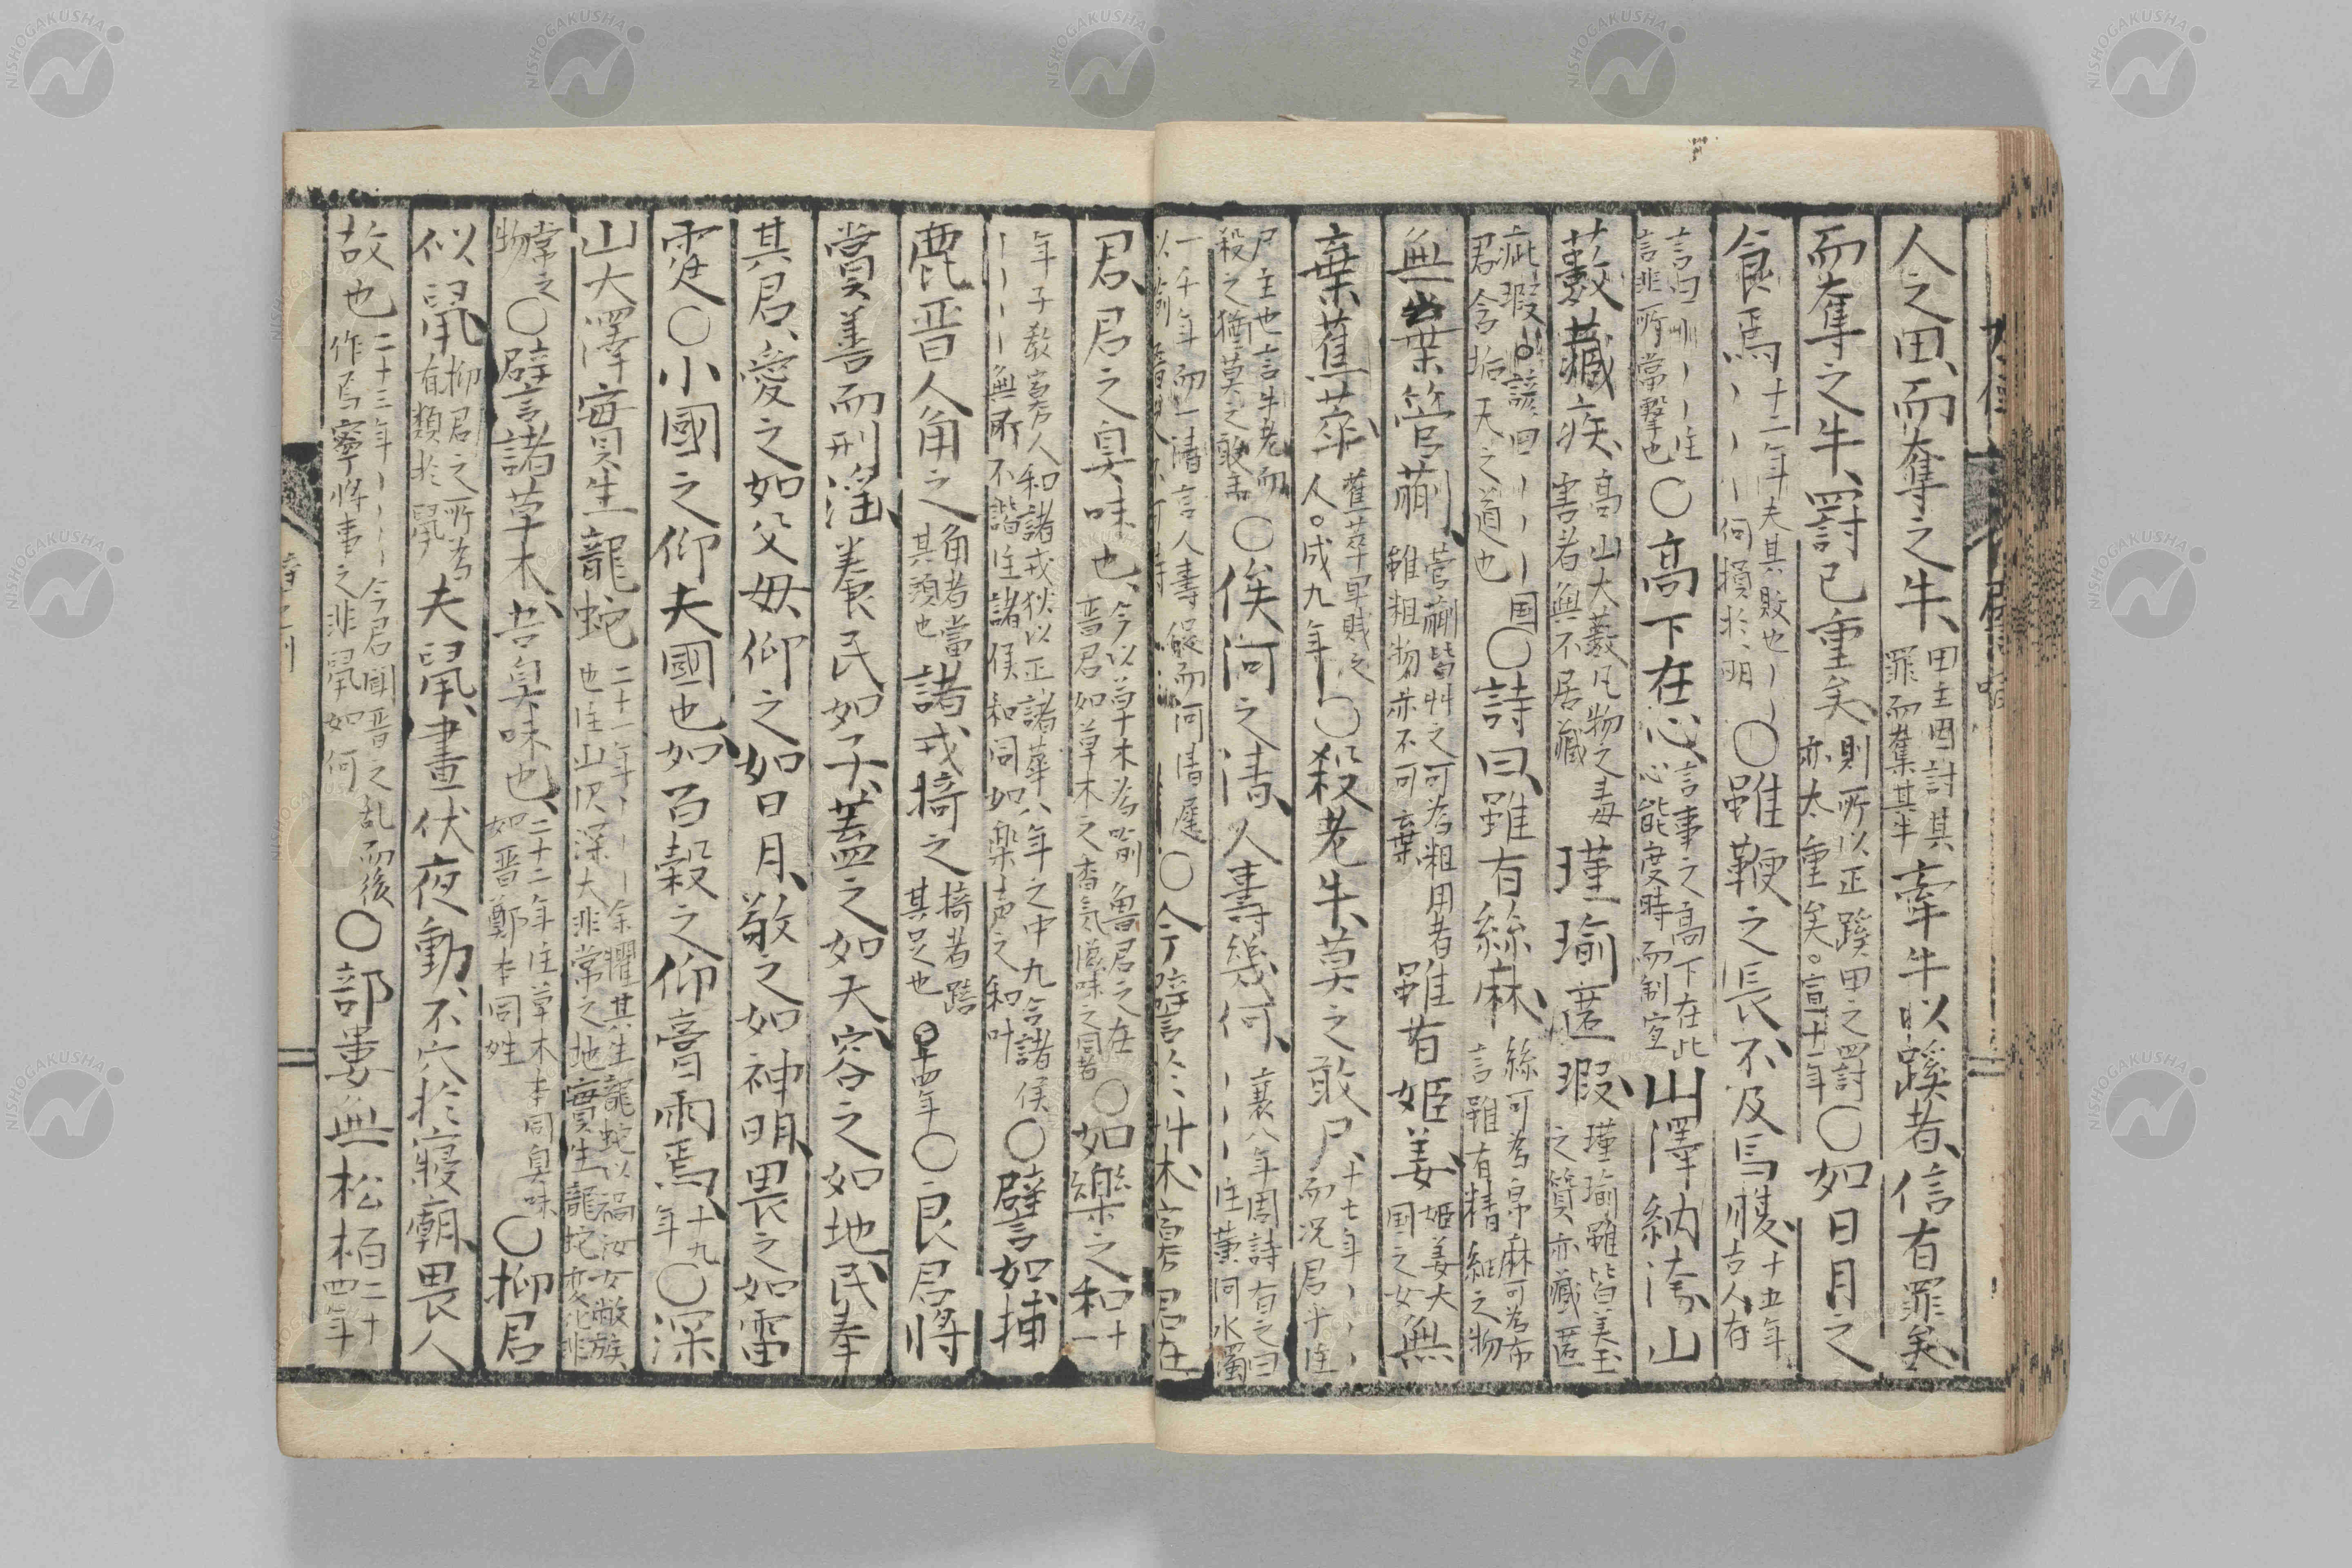 人之田、而奪之牛、田主因討其罪而奪其牛牽牛以蹊者、信有罪矣、
而奪之牛、罸已重矣、則所以正蹊田之罸亦太重矣。宣十一年〇如日月之
食焉十二年夫其敗也何損於明〇雖鞭之長、不及馬腹、十五年古人有
言曰註言非所當擊也〇高下在心、言事之高下在此心心能度時而制宜山澤納汚、山
藪藏疾、高山大藪凡物之毒害者無不居藏瑾瑜匿瑕、瑾瑜雖皆美玉之質亦藏匿
疵瑕諺曰国君含垢天之道也〇詩曰、雖有絲麻、絲可為帛麻可為布言雖有精細之物
無棄菅蒯、菅蒯皆艸之可為粗用者雖粗物亦不可棄雖有姬姜、姬姜大国之女無
棄蕉萃、蕉萃卑賤之人。成九年〇殺老牛、莫之敢尸、十七年而况君乎註
尸主也言牛老而殺之猶莫之敢主〇俟河之清、人壽幾何、襄八年周詩有之曰註黄河水濁
一千年而一清言人壽幾而何清〇今譬於草木寡君在
君、君之臭味也、今以草木為喻魯君之在晋君如草木之香氣滋味之同者〇如樂之和十一
年子教寡人和諸戎狄以正諸華八年之中九合諸侯無所不諧註諸侯和同如樂声之和叶〇譬如捕
鹿晋人角之角者當其頭也諸戎掎之掎者踣其足也〇十四年〇良君將
賞善而刑淫、養民如子、蓋之如天、容之如地、民奉
其君、愛之如父母、仰之如日月、敬之如神明、畏之如雷
霆〇小國之仰夫國也、如百穀之仰膏雨焉、十九年〇深
山大澤、實生龍蛇二十一年余懼其生龍蛇以禍汝女敝族也註山沢深大非常之地實生龍蛇変化非
常之物〇譬諸草木、吾臭味也、二十二年註草木本同臭味如晋鄭本同姓〇抑君
似鼠、抑君之所為有類於鼠夫鼠、晝伏夜動、不穴於寢廟、畏人
故也二十三年今君聞晋之乱而後作焉寧將事之非鼠如何〇部婁無松栢二十四年